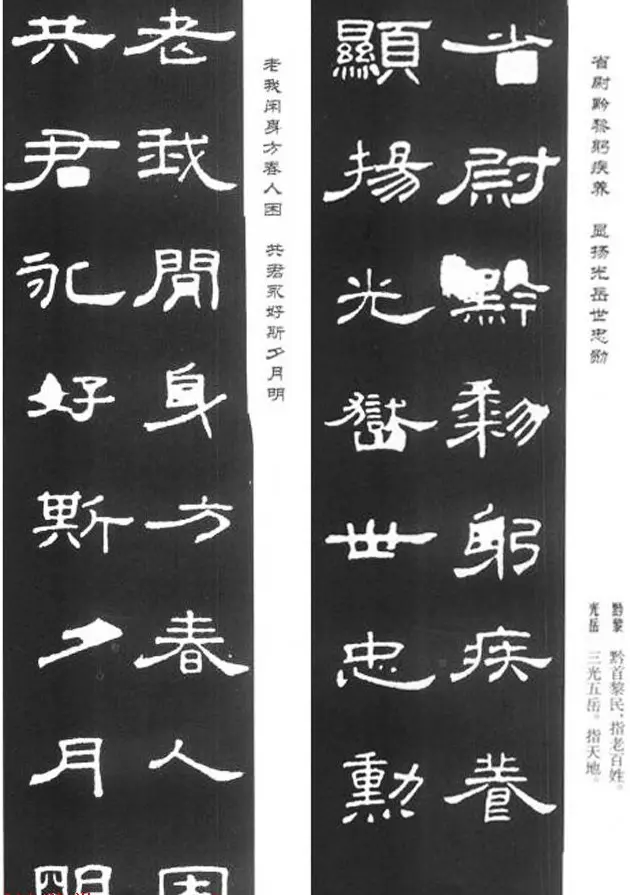 省尉黔黎躬疾养 显扬光岳世忠勋
黔黎 黔首黎民，指老百姓。
光岳 三光五岳。指天地。
省尉黔黎躬疾養
顯揚光嶽世忠勳
老我闲身方春人困 共君永好斯夕月明
老我閒身方春人困
共君永好斯夕月明